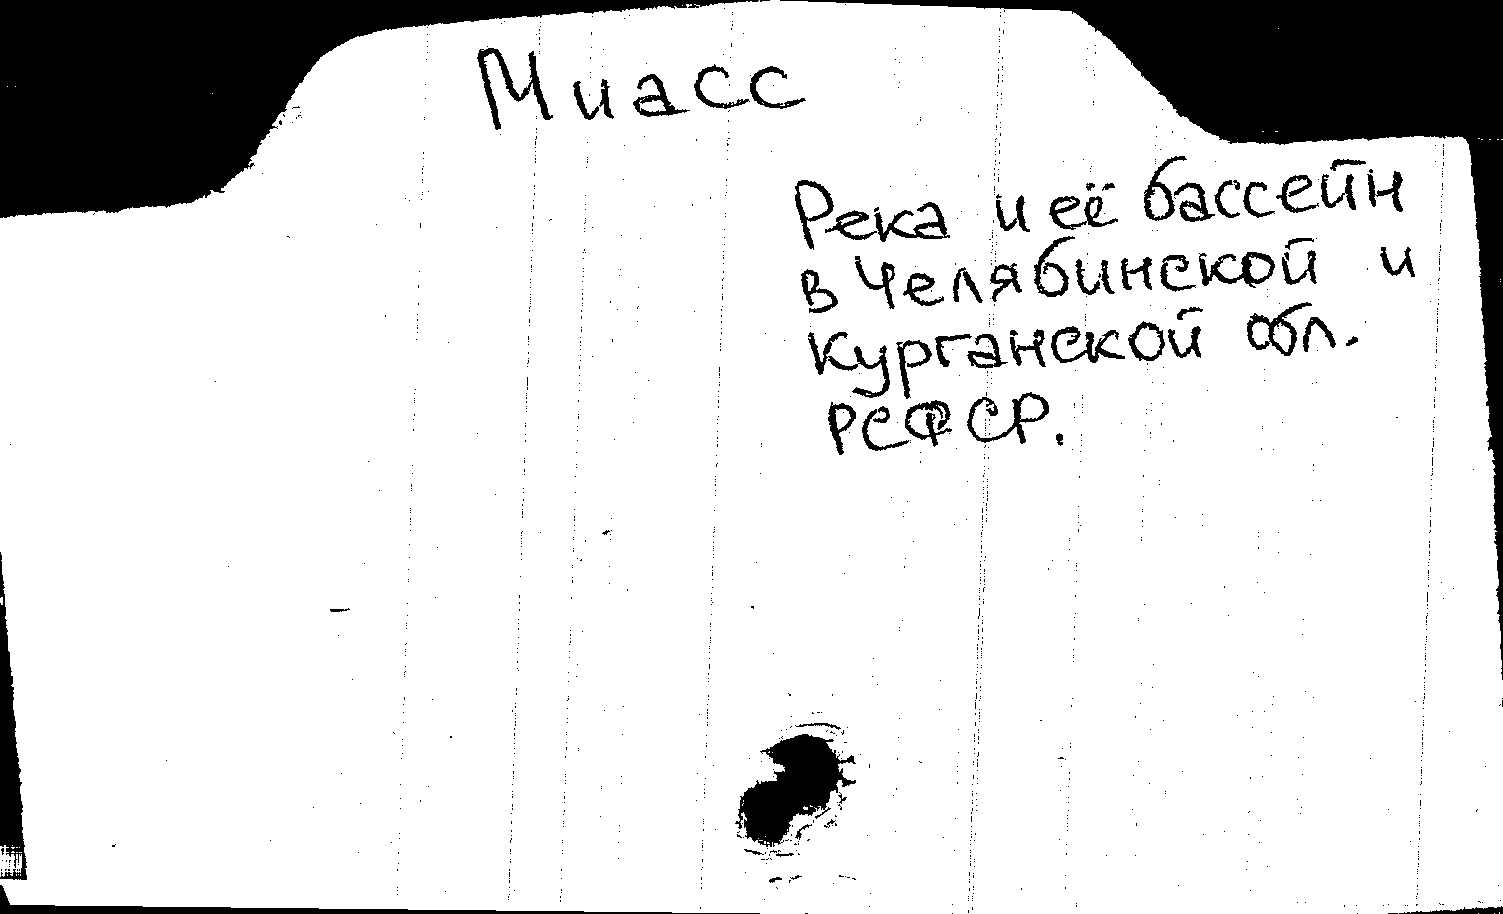 Миасс
Река и её бассейн
в Челябинской и
Курганской обл.
РСФСР.